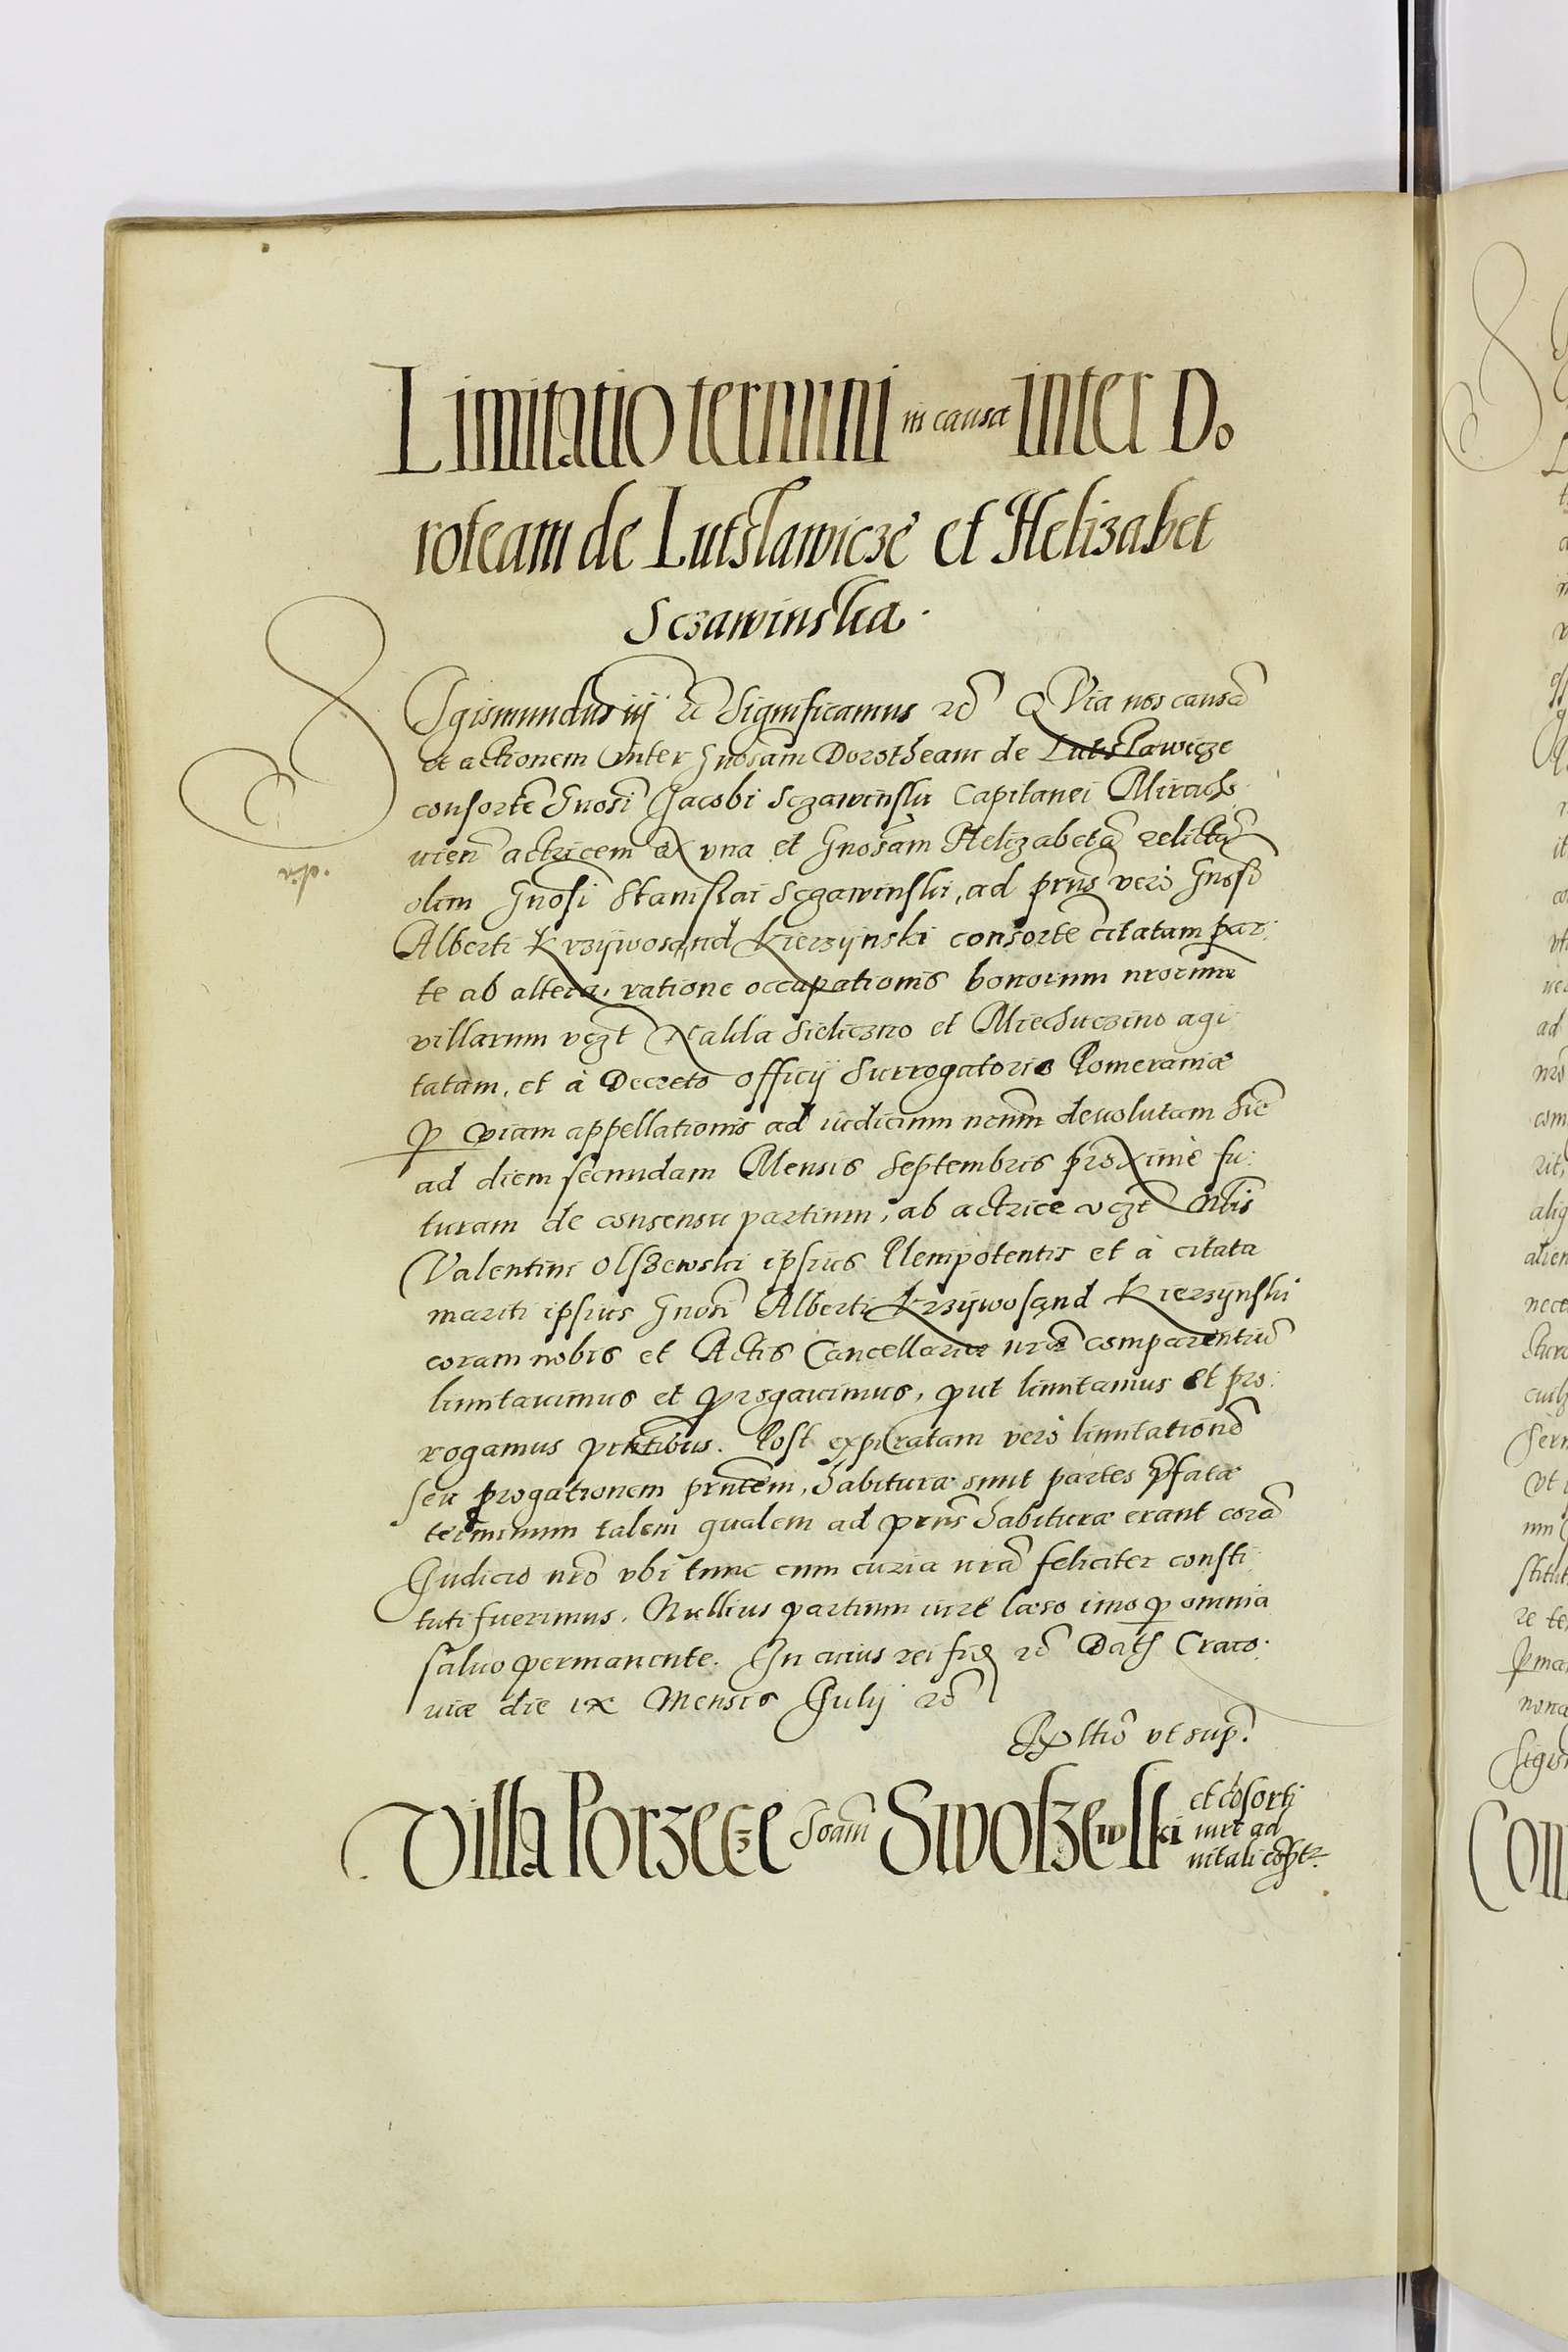 Limitatio termini in causa inter Do
roteam de Lutslawicze et Helizabet
Sczawinska.
Sigismundus iij etc Significamus etc Quia nos causã
et actionem inter Gnosam Dorotheam de Lutslawicze
consortẽ Gnosi Jacobi Sczawinski Capitanei Mirachо
uieñ actricem ex vna et Gnosam Helizabetã relictã
olim Gnosi Stanislai Sczawinski, ad prns vero Gnosi
Alberti Krzywosąnd Kierzynski consortẽ citatam par
te ab altera, ratione occupationis bonorum nrorum
villarum vczt Kalila Sieliczno et Miechuczino agi
tatam, et à Decreto officij Surrogatoris Pomeraniæ
P viam appellationis ad iudicium nrum deuolutam hic
ad diem secundam Mensis Septembris proximè fu
turam de consensu partium, ab actrice vczt Nblis
Valentini Olszewski ipsius Plenipotentis et à citata
mariti ipsius Gnosi Alberti Krzywosąnd Kierzynski
coram nobis et Actis Cancellariæ nræ comparentiũ
limitauimus et prorogauimus, put limitamus et pro
rogamus prntibus. Post expiratam vero limitationẽ
seu prorogationem prntem, habituræ sunt partes pfatæ
terminum talem qualem ad prns habituræ erant corã
Judicio nro vbi tunc cum curia nrã feliciter consti
tuti fuerimus. Nullius partium iure læso imo p omnia
saluo permanente. In cuius rei fidẽ etc Dats Craco
uiæ die ix Mensis Julij etc
Rltio vt sup.
Villa Porzecze Joañ Swoszewski et cõsorti
iure ad
uitali cõft.